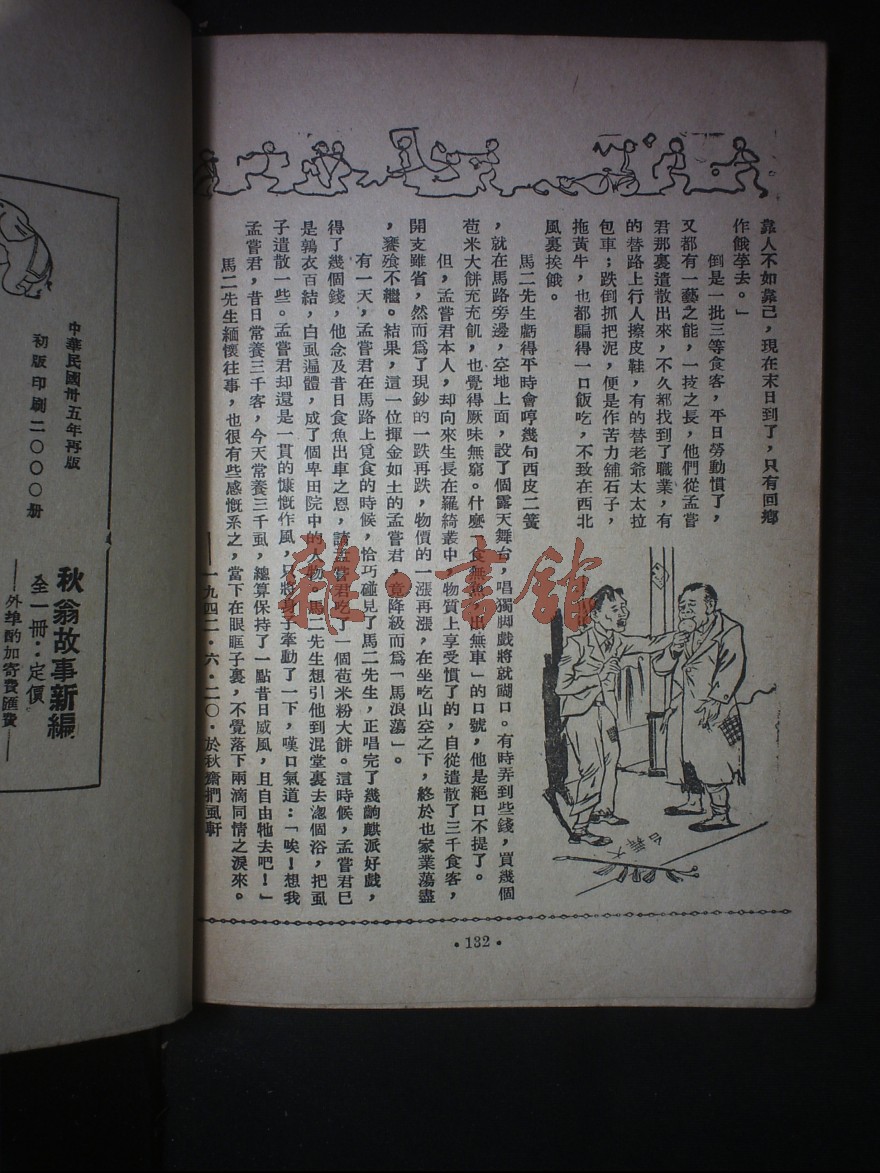 靠人不如靠己，現在末日到了，只有回鄉
作餓莩去。」
倒是一批三等食客，平日勞動慣了，
又都有一藝之能，一技之長，他們從孟嘗
君那裏遣散出來，不久都找到了職業，有
的替路上行人擦皮鞋，有的替老爺太太拉
包車；跌倒抓把泥，便是作苦力舖石子，
拖黃牛，也都騙得一口飯吃，不致在西北
風裏挨餓。
馬二先生虧得平時會哼幾句西皮二簧
，就在馬路旁邊，空地上面，設了個露天舞台，唱獨脚戲將就餬口。有時弄到些錢，買幾個
苞米大餅充充飢，也覺得厥味無窮。什麼「食無魚，出無車」的口號，他是絕口不提了。
但，孟嘗君本人，却向來生長在羅綺叢中，物質上享受慣了的，自從遣散了三千食客，
開支雖省，然而爲了現鈔的一跌再跌，物價的一漲再漲，在坐吃山空之下，終於也家業蕩盡
，饔飧不繼。結果，這一位揮金如土的孟嘗君，竟降級而爲「馬浪蕩」。
有一天，孟嘗君在馬路上覓食的時候，恰巧碰見了馬二先生，正唱完了幾齣麒派好戲，
得了幾個錢，他念及昔日食魚出車之恩，請孟嘗君吃了一個苞米粉大餅。這時候，孟嘗君已
是鶉衣百結，白虱遍體，成了個卑田院中的人物。馬二先生想引他到混堂裏去淴個浴，把虱
子遣散一些。孟嘗君却還是一貫的慷慨作風，只將身子牽動了一下，嘆口氣道：「唉！想我
孟嘗君，昔日常養三千客，今天常養三千虱，總算保持了一點昔日威風，且自由牠去吧！」
馬二先生緬懷往事，也很有些感慨系之，當下在眼眶子裏，不覺落下兩滴同情之淚來。
——一九四二・六・二〇・於秋齋捫虱軒
・132・
雜・書館
中華民國卅五年再版
初版印刷二〇〇〇册
秋翁故事新編
全一冊：定價
——外埠酌加寄費匯費——